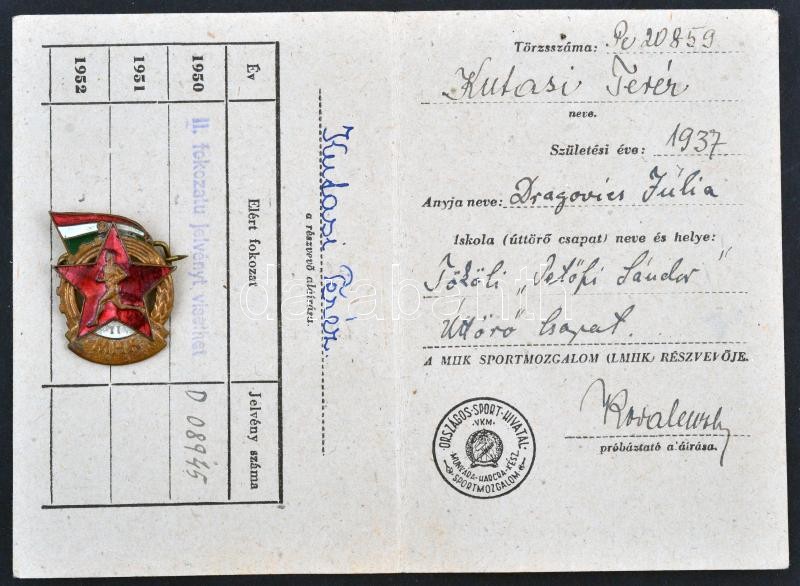 Év
Elért fokozat
Jelvény száma
1950
II. fokozatu jelvényt viselhet
D 08945
1951
1952
Kutasi
a részvevő aláírása.
Törzsszáma: Pe 20859
Kutasi
neve.
Születési éve: 1937
Anyja neve: Dragovics Júlia
Iskola (úttörő csapat) neve és helye:
Tököli „Petőfi Sándor"
Úttörő Csapat.
A MHK SPORTMOZGALOM (LMHK) RÉSZVEVŐJE.
ORSZÁGOS·SPORT·HIVATAL
·VKM·
MUNKÁRA·HARCRA·KÉSZ
SPORTMOZGALOM
próbáztató aláírása.
II
darabanth